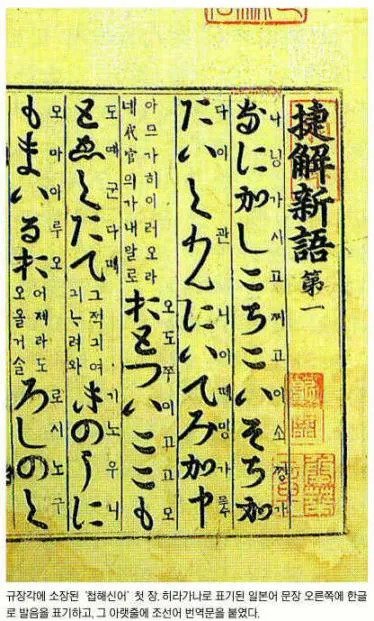 捷解新語 第一
나닝가시고찌고이소찡가
なにかしこちこいそちか
다이관니이
たいくわんにいてみか中
아므가히이러오라
네代官의가내말로
오도쭈이고고모
おとついここも
도
とゑくたて
그적긔여
기노우니
きのうに
모마이루오
もまいるお
어제라도
오올거슬
로시노구
ろしのく
규장각에 소장된 '첩해신어' 첫 장. 히라가나로 표기된 일본어 문장 오른쪽에 한글
로 발음을 표기하고, 그 아랫줄에 조선어 번역문을 붙였다.